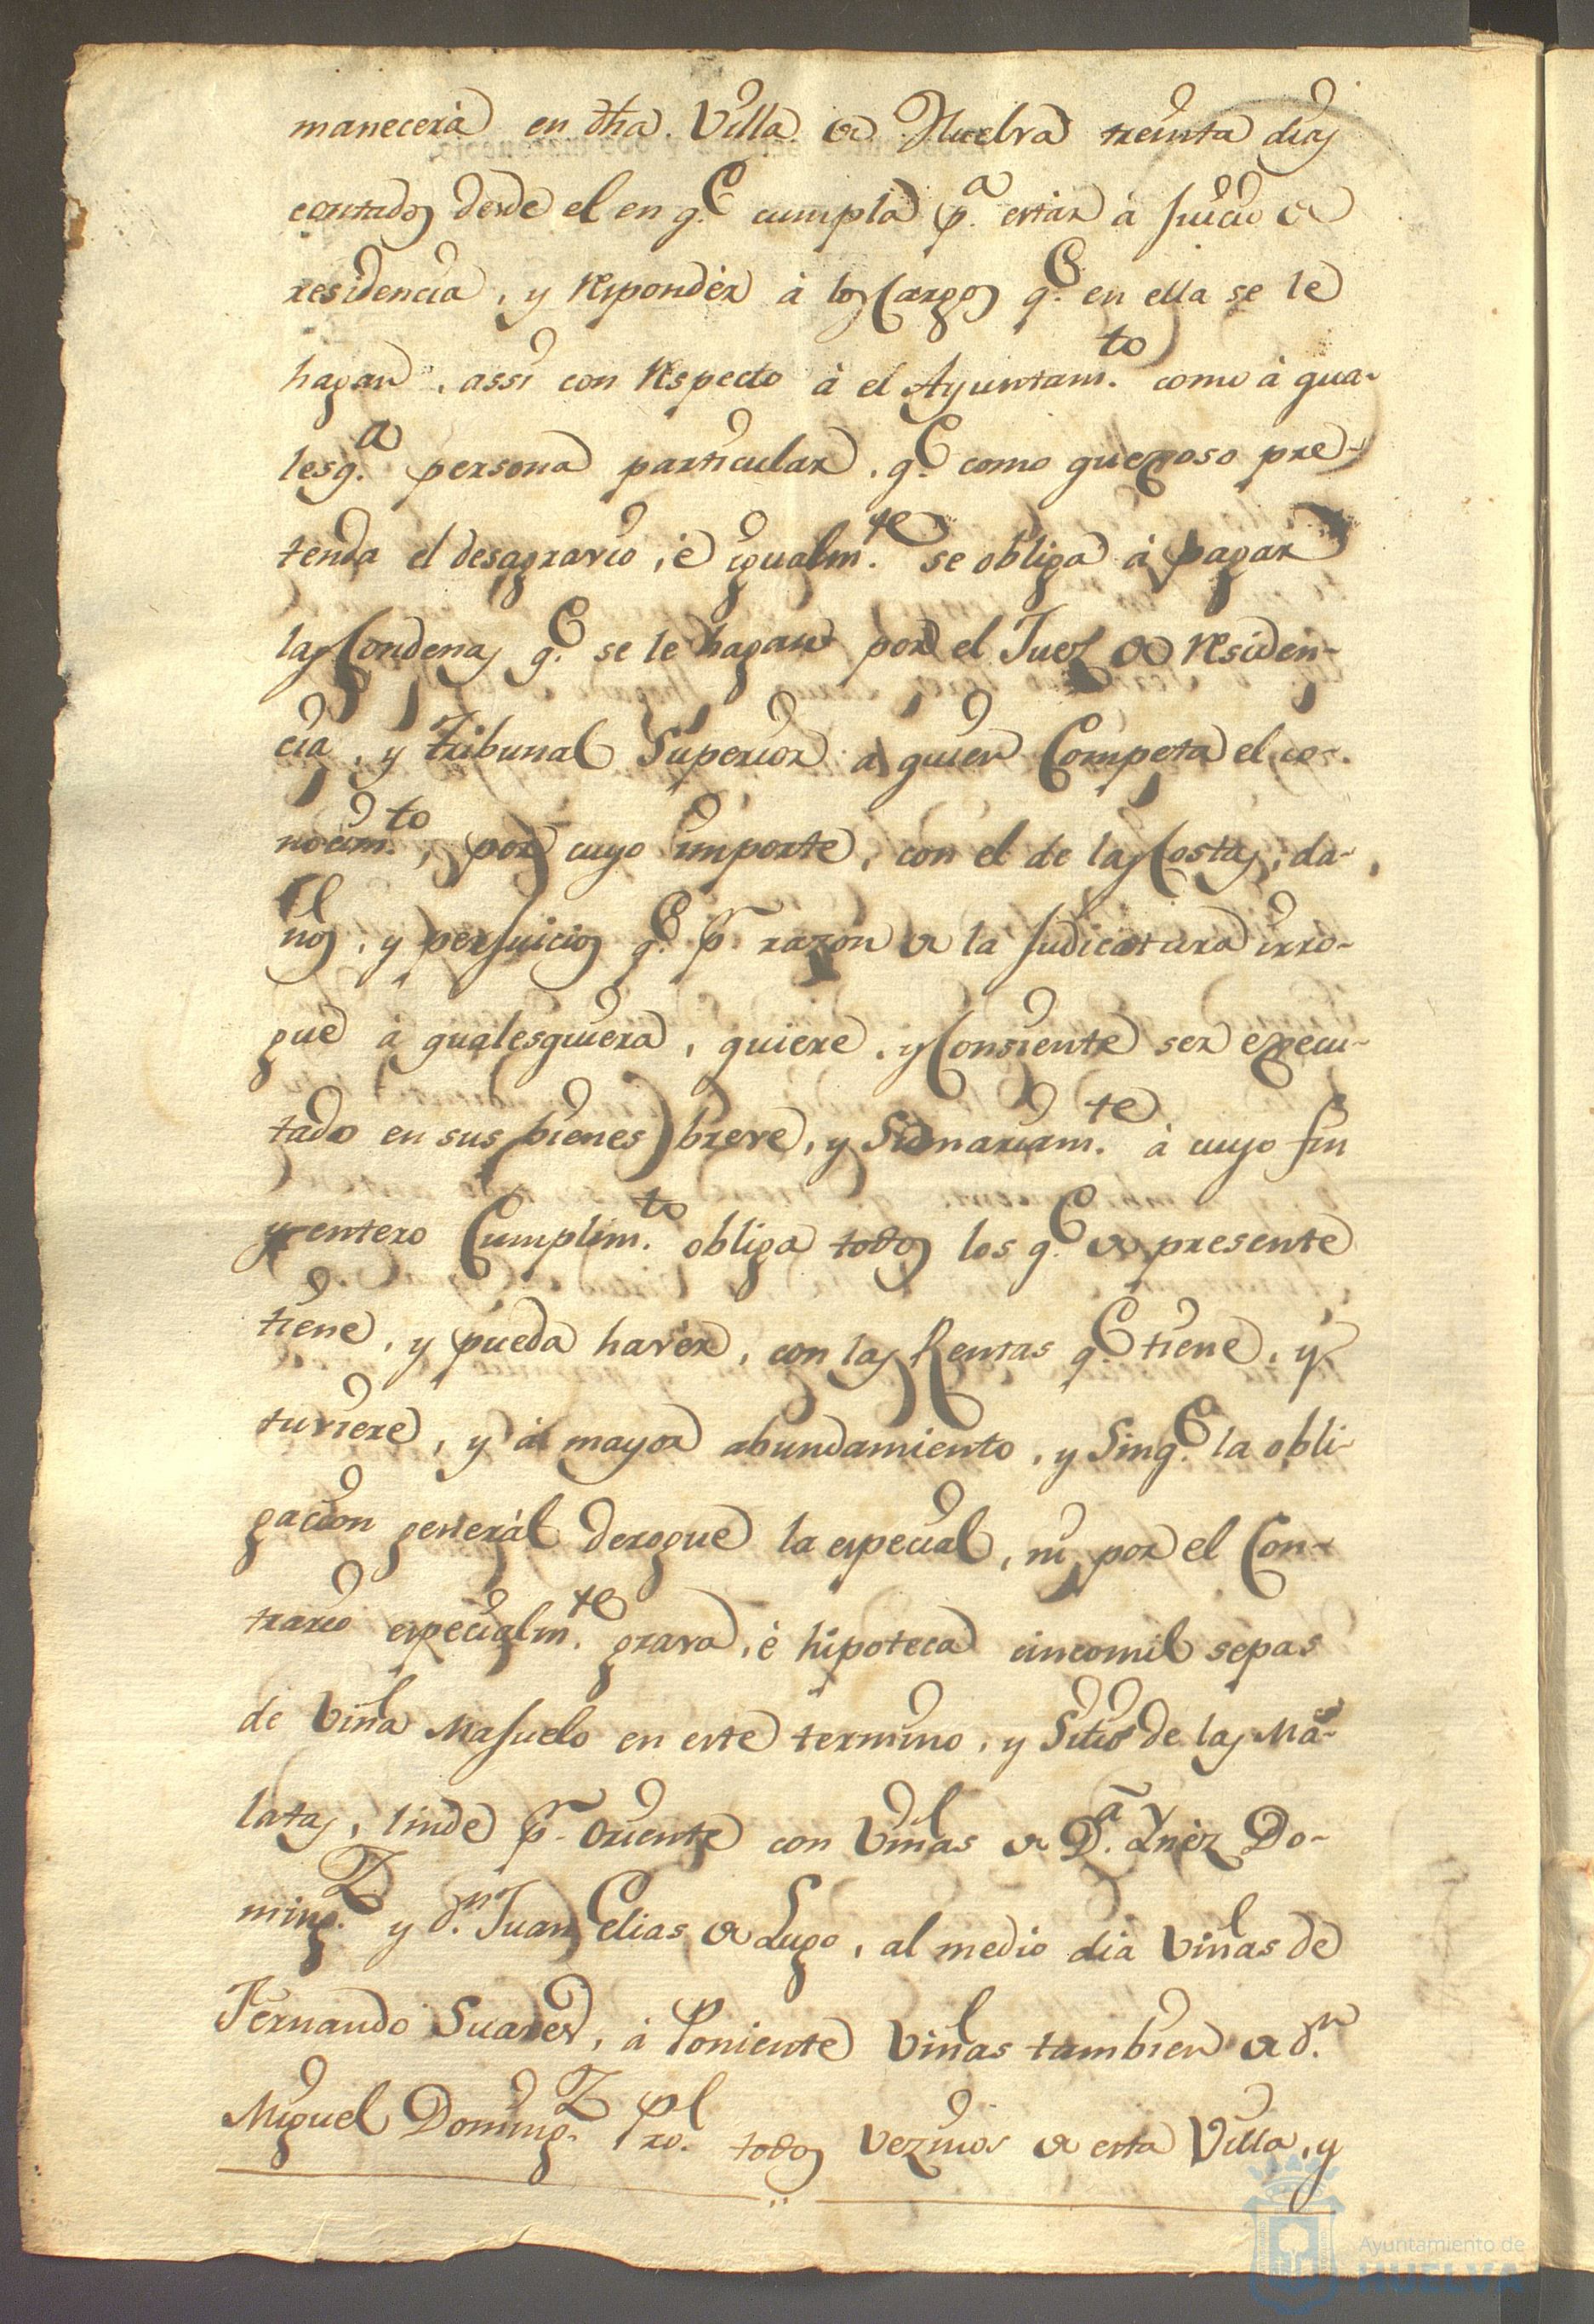 manecerá en dha. Villa de Huelva treinta dias
contados desde el en q.e cumpla p.a estár à Juicio de
residencia, y respondér à los Cargos q.e en ella se le
hagan, assi con respecto à el Ayuntam.to como à qua-
lesq.a persona particular, q.e como quexoso pre-
tenda el desagravio, è igualm.te se obliga à pagar
las Condenas q.e se le hagan por el Juez de residen-
cia, y tribunal Superior a quien Competa el co-
nocim.to, por cuyo importe, con el de las Costas, da-
ños, y perJuicios q.e p.r razon de la Judicatura irro-
gue à qualesquiera, quiere, y Consiente ser execu-
tado en sus bienes breve, y Sumariam.te à cuyo fin
y entero Cumplim.to obliga todos los q.e de presente
tiene, y pueda havér, con las Rentas q.e tiene, y
tuviere, y à mayor abundamiento, y Sin q.e la obli-
gacion generál derogue la especial, ni por el Con-
trario especialm.te grava, è hipoteca cincomil sepas
de Viña MaJuelo en este termino, y Sitio de las Ma-
latas, linde p.r Oriente con Viñas de D.a Ynéz Do-
ming.z y d.n Juan Elias de Lugo, al medio dia Viñas de
Fernando Suares, à Poniente Viñas tambien de d.n
Miguel Doming.z Pro. todos Vezinos de esta Villa, y
Ayuntamiento de
HUELVA